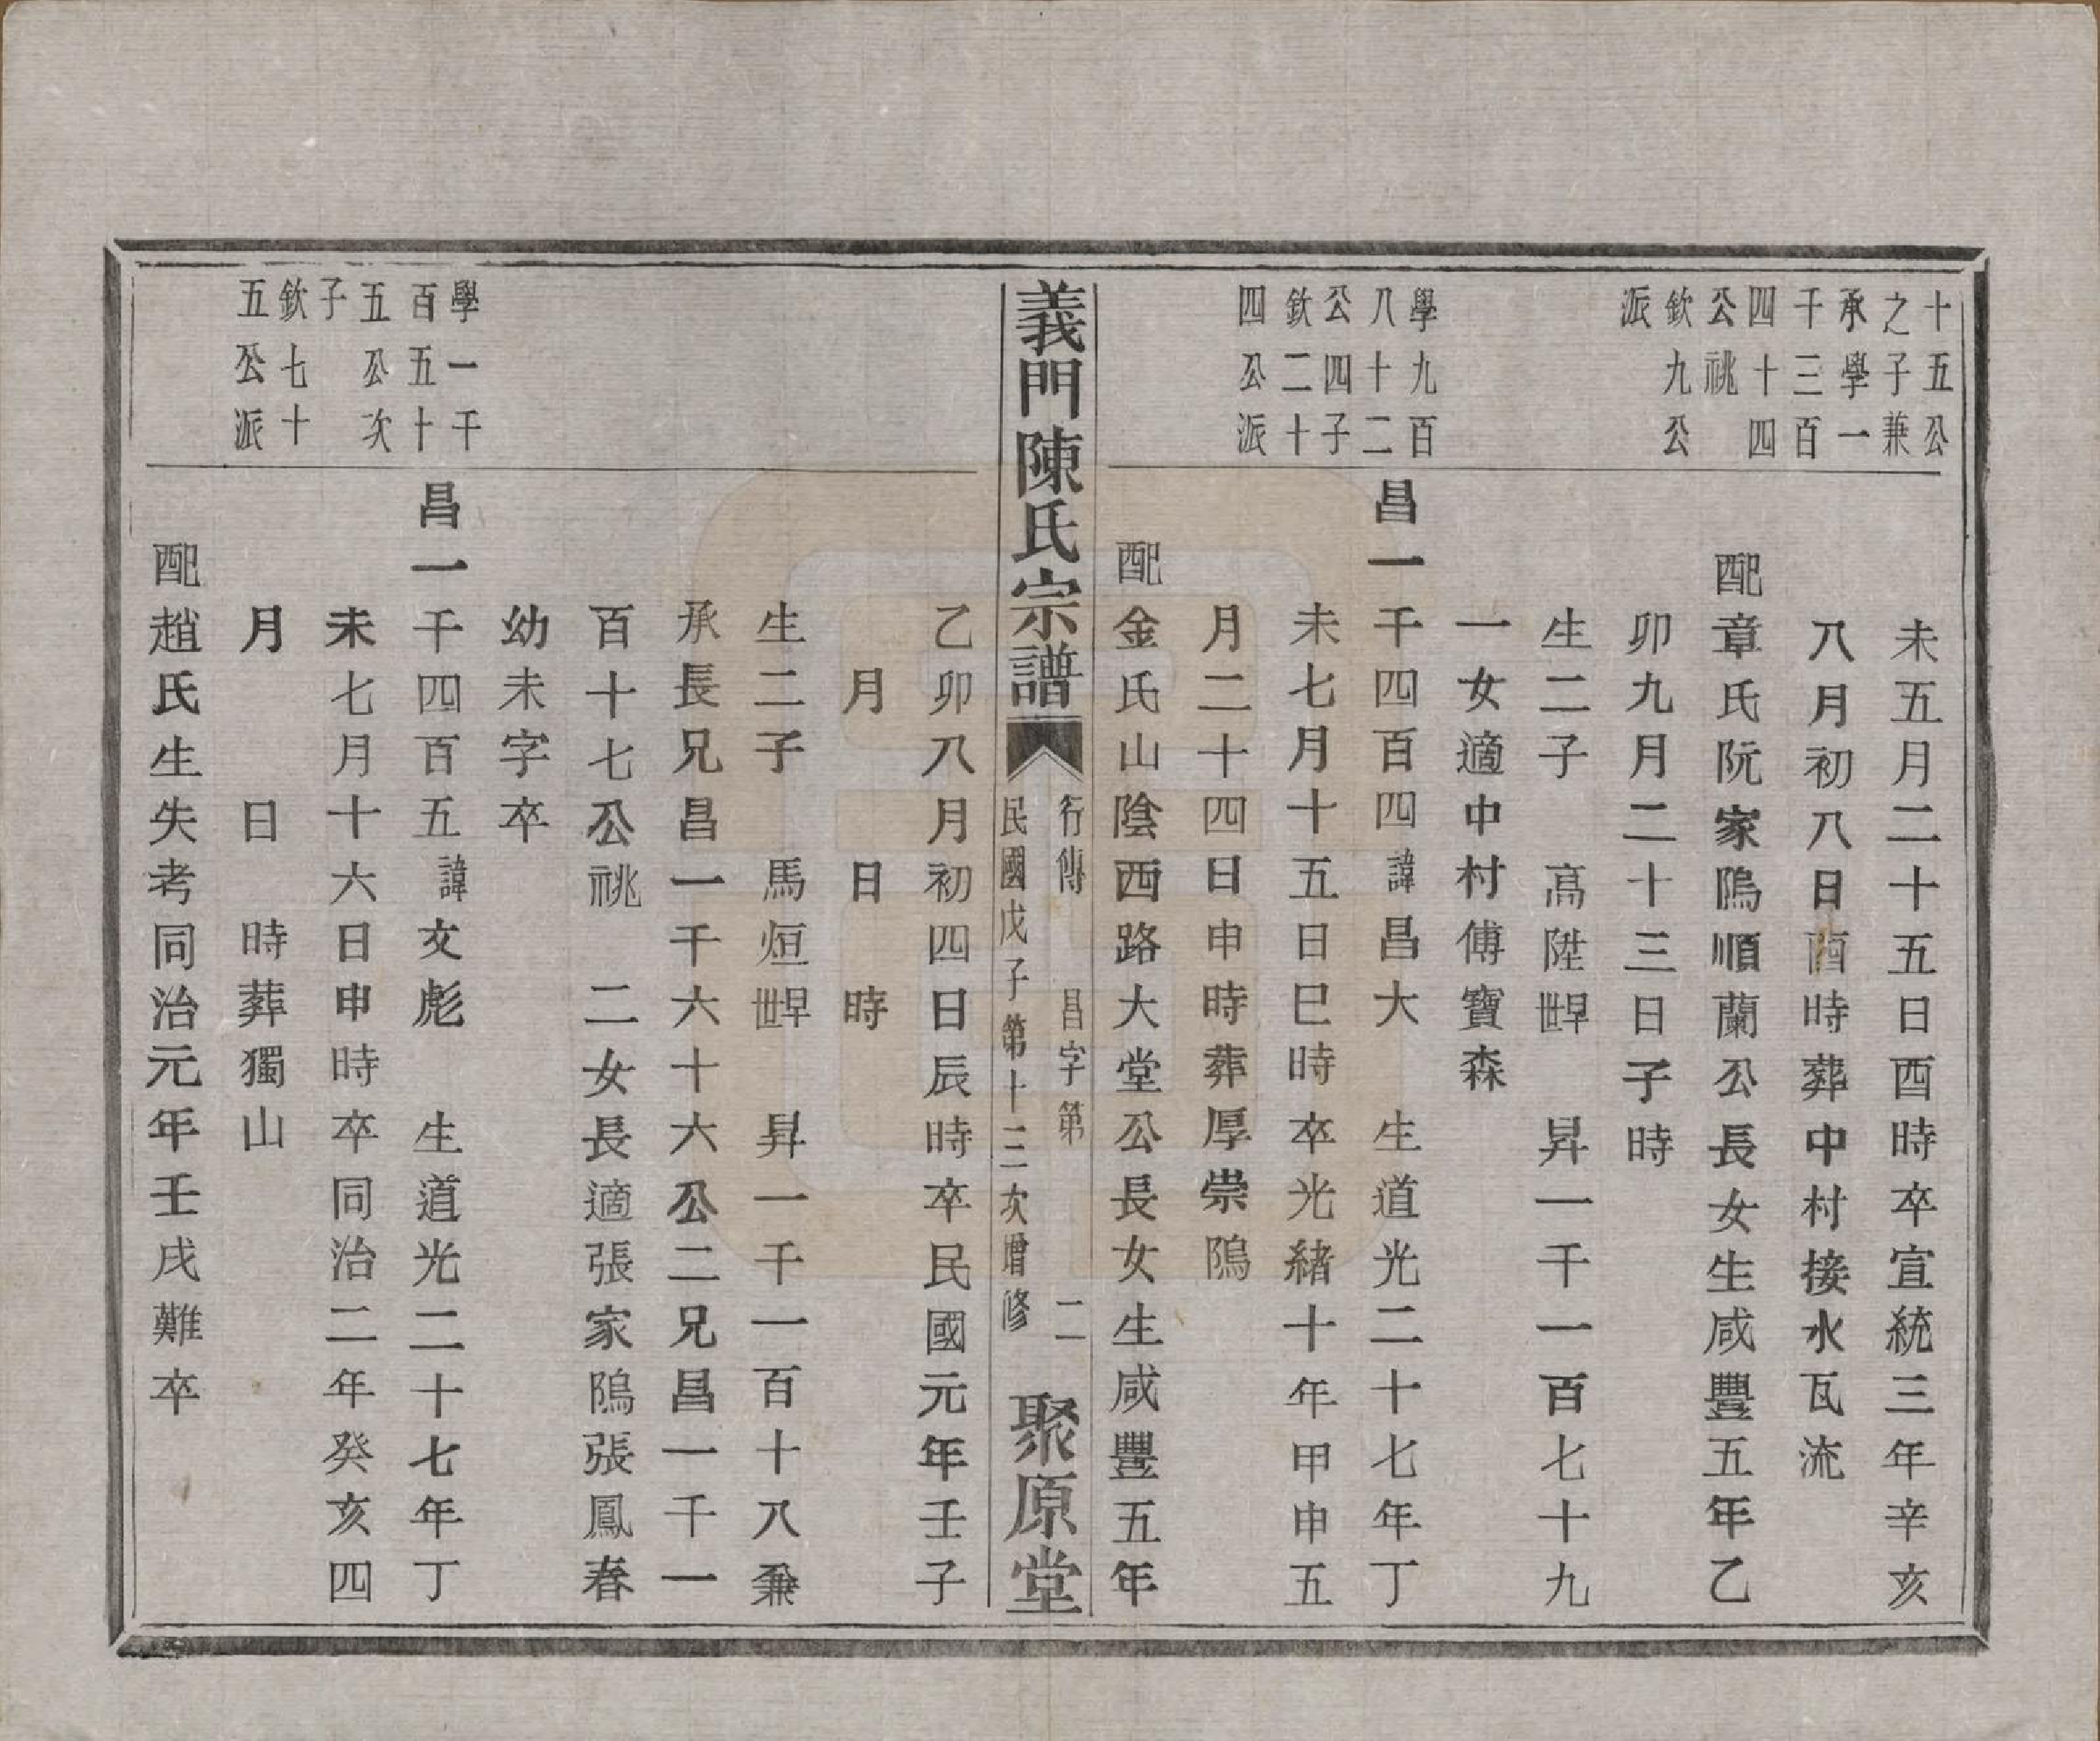 十五公
之子兼
承學一
千三百
四十四
公祧
欽九公
派
未五月二十五日酉時卒宣統三年辛亥
八月初八日酉時葬中村接水瓦流
配章氏阮家隖順蘭公長女生咸豐五年乙
卯九月二十三日子時
生二子 高陞世早 昇一千一百七十九
一女適中村傅寶森
學九百
八十二
公四子
欽二十
四公派
昌一千四百四諱昌大 生道光二十七年丁
未七月十五日巳時卒光緒十年甲申五
月二十四日申時葬厚崇隖
配金氏山陰西路大堂公長女生咸豐五年
義門陳氏宗譜
行傳 昌字第 二
民國戊子第十三次增修
聚原堂
乙卯八月初四日辰時卒民國元年壬子
月 日 時
生二子 馬烜世早 昇一千一百十八兼
承長兄昌一千六十六公二兄昌一千一
百十七公祧 二女長適張家隖張鳳春
幼未字卒
學一千
百五十
五公次
子
欽七十
五公派
昌一千四百五諱文彪 生道光二十七年丁
未七月十六日申時卒同治二年癸亥四
月 日 時葬獨山
配趙氏生失考同治元年壬戌難卒